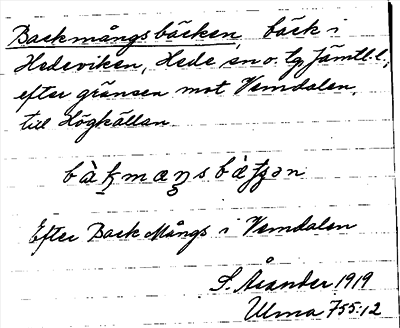 Backmångsbäcken, bäck i
Hedeviken, Hede sn o. tg, Jämtl. l.,
efter gränsen mot Vemdalen,
till Högkällan.
Efter Back Mångs i Vemdalen
S. Åsander 1919
Ulma 755:12